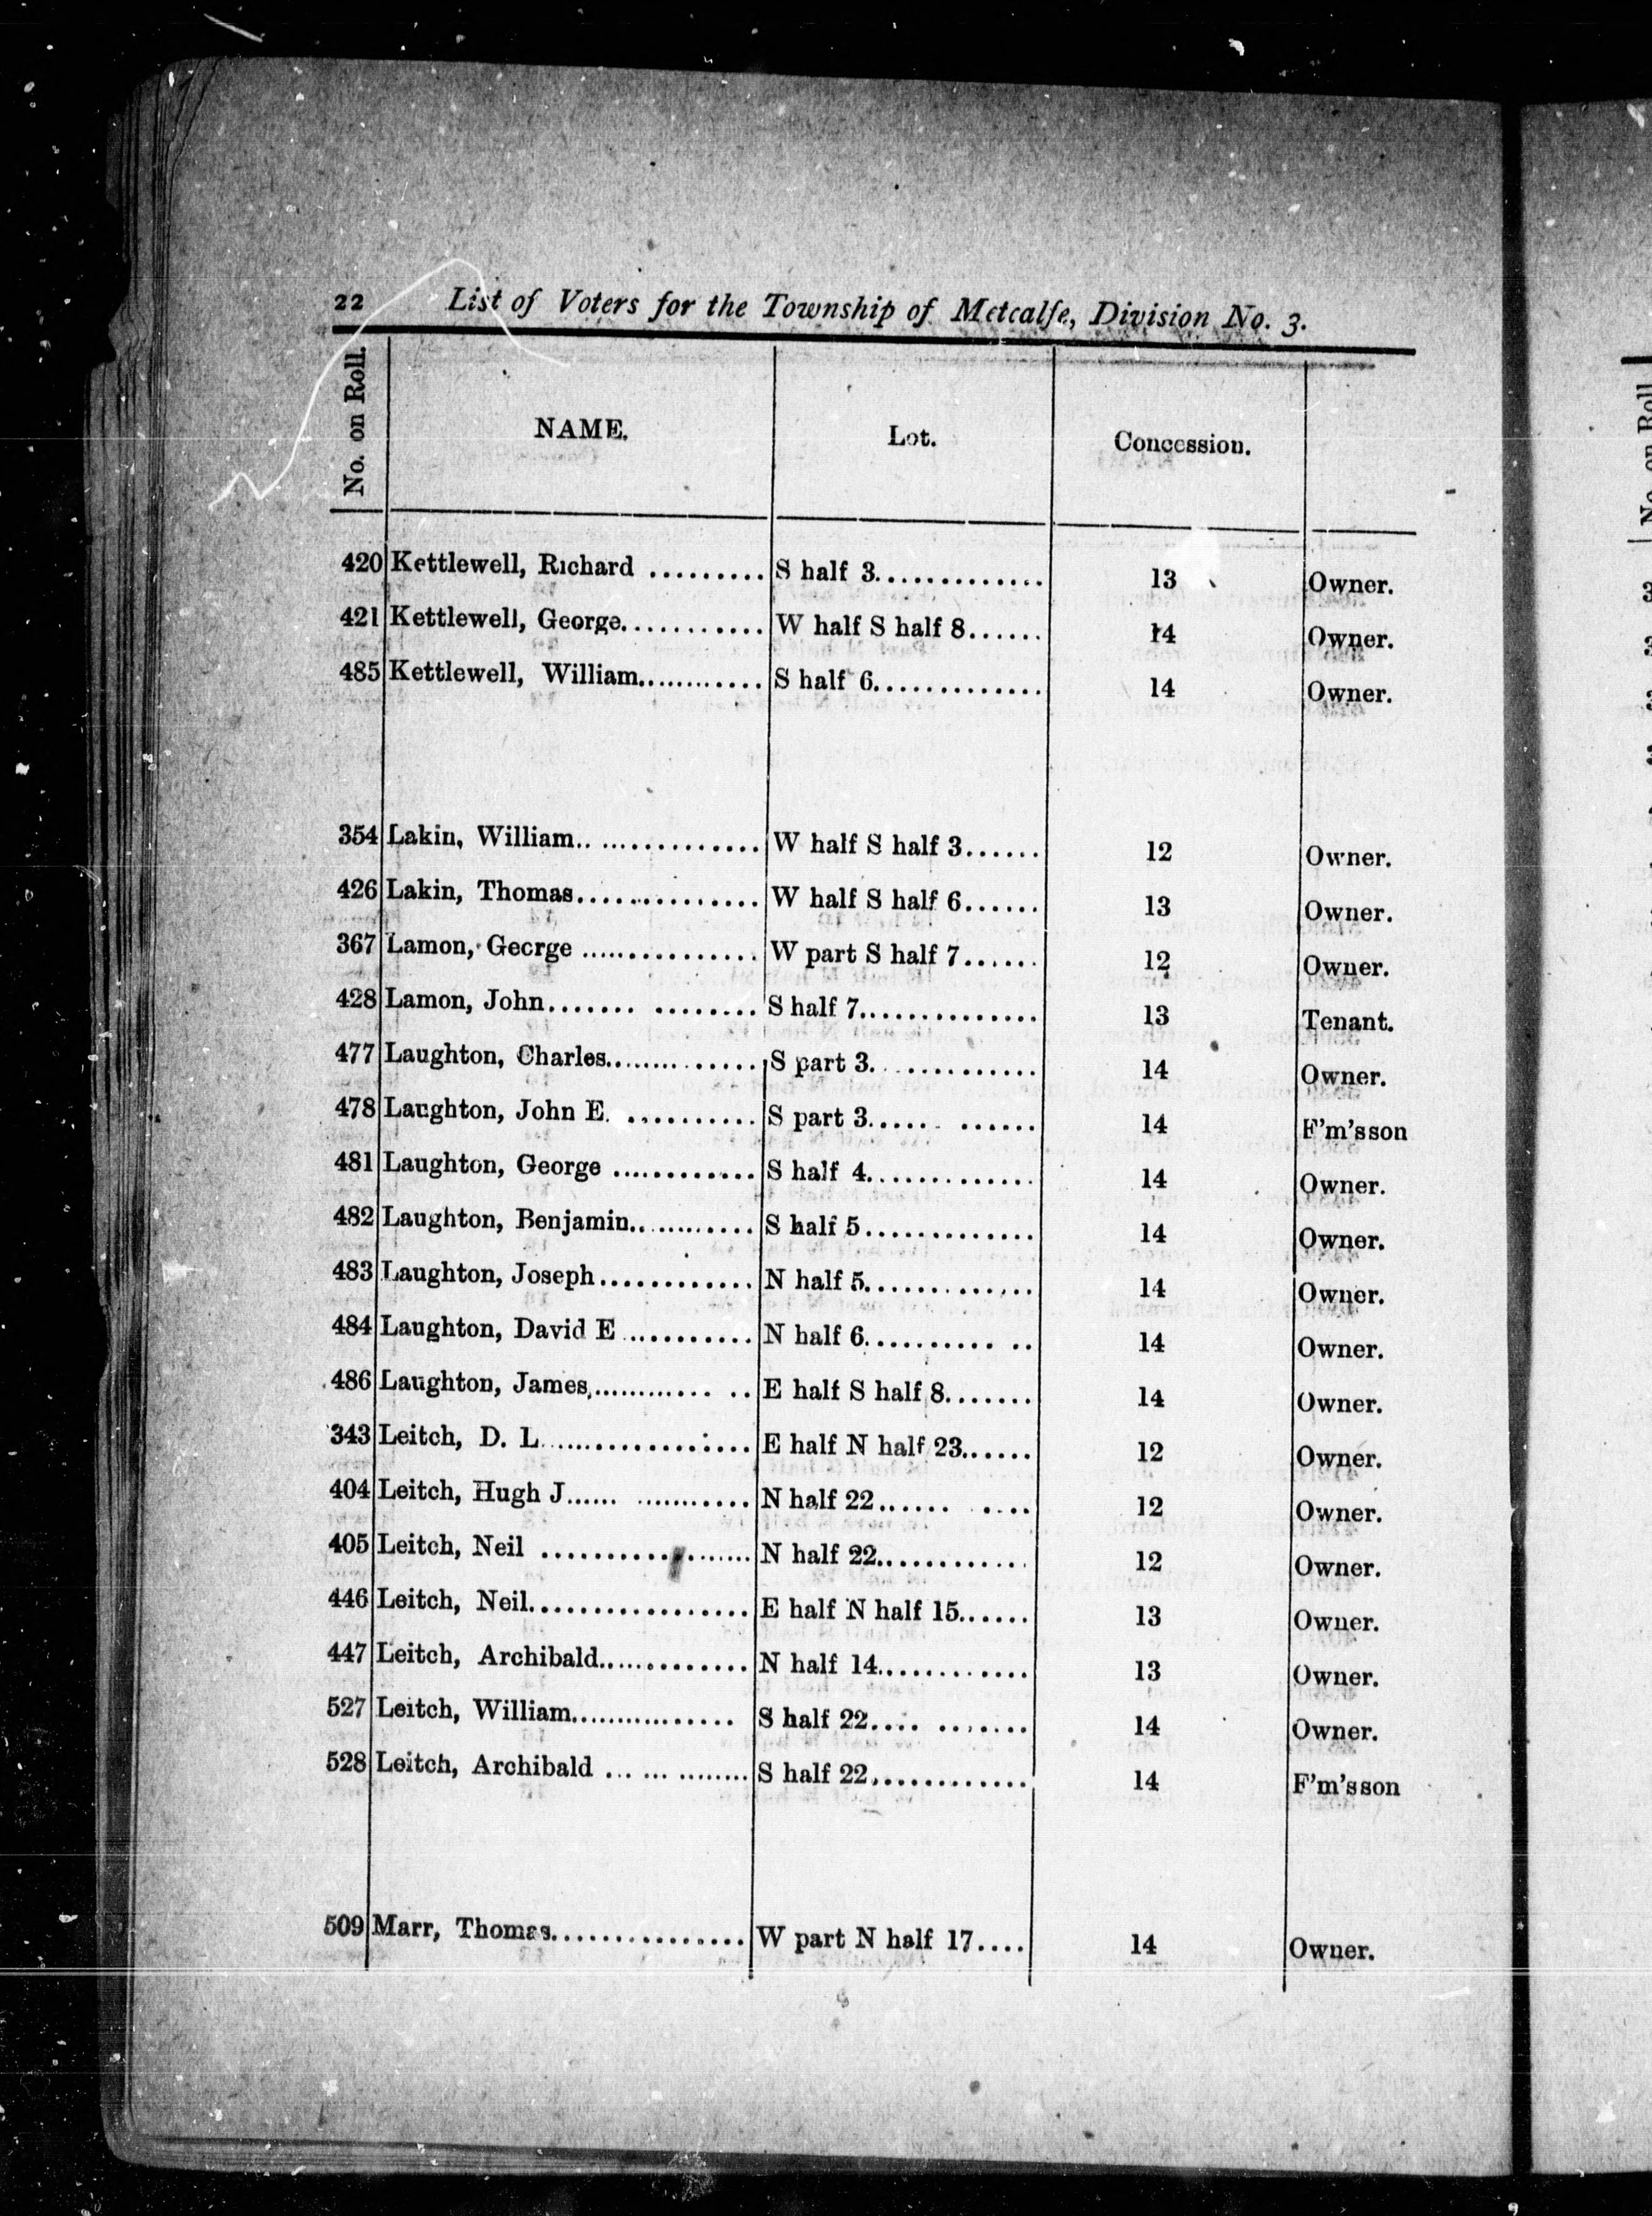 22 List of Voters for the Township of Metcalfe, Division No. 3.
No. on Roll. NAME. Lot. Concession.
420 Kettlewell, Richard ......... S half 3............. 13 Owner.
421 Kettlewell, George........... W half S half 8...... 14 Owner.
485 Kettlewell, William............ S half 6............. 14 Owner.
354 Lakin, William.. .............. W half S half 3...... 12 Owner.
426 Lakin, Thomas.............. W half S half 6...... 13 Owner.
367 Lamon, George ............... W part S half 7...... 12 Owner.
428 Lamon, John....... ........ S half 7.............. 13 Tenant.
477 Laughton, Charles.............. S part 3............. 14 Owner.
478 Laughton, John E. .......... S part 3...... ...... 14 F'm's son
481 Laughton, George ............ S half 4............. 14 Owner.
482 Laughton, Benjamin............ S half 5............. 14 Owner.
483 Laughton, Joseph............ N half 5............. 14 Owner.
484 Laughton, David E .......... N half 6.......... .. 14 Owner.
486 Laughton, James............ .. E half S half 8....... 14 Owner.
343 Leitch, D. L................. E half N half 23...... 12 Owner.
404 Leitch, Hugh J...... ........... N half 22...... .... 12 Owner.
405 Leitch, Neil .................. N half 22............ 12 Owner.
446 Leitch, Neil................. E half N half 15...... 13 Owner.
447 Leitch, Archibald............. N half 14............ 13 Owner.
527 Leitch, William............... S half 22.... ....... 14 Owner.
528 Leitch, Archibald ... ... ........ S half 22............ 14 F'm's son
509 Marr, Thomas............... W part N half 17.... 14 Owner.
No. on Roll